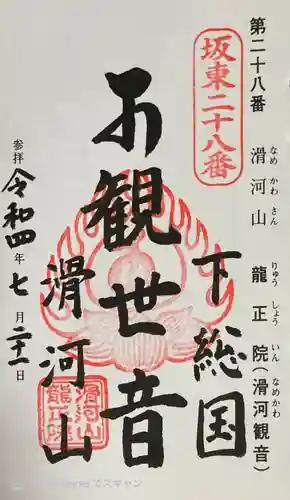 第二十八番 滑河山 龍正院(滑河観音)
なめ かわ さん りゅう しょう いん なめかわ
坂東二十八番
下総国
観世音
滑河山
滑河山
龍正院
参拝 令和四年 七月 二十一日
でスキャン